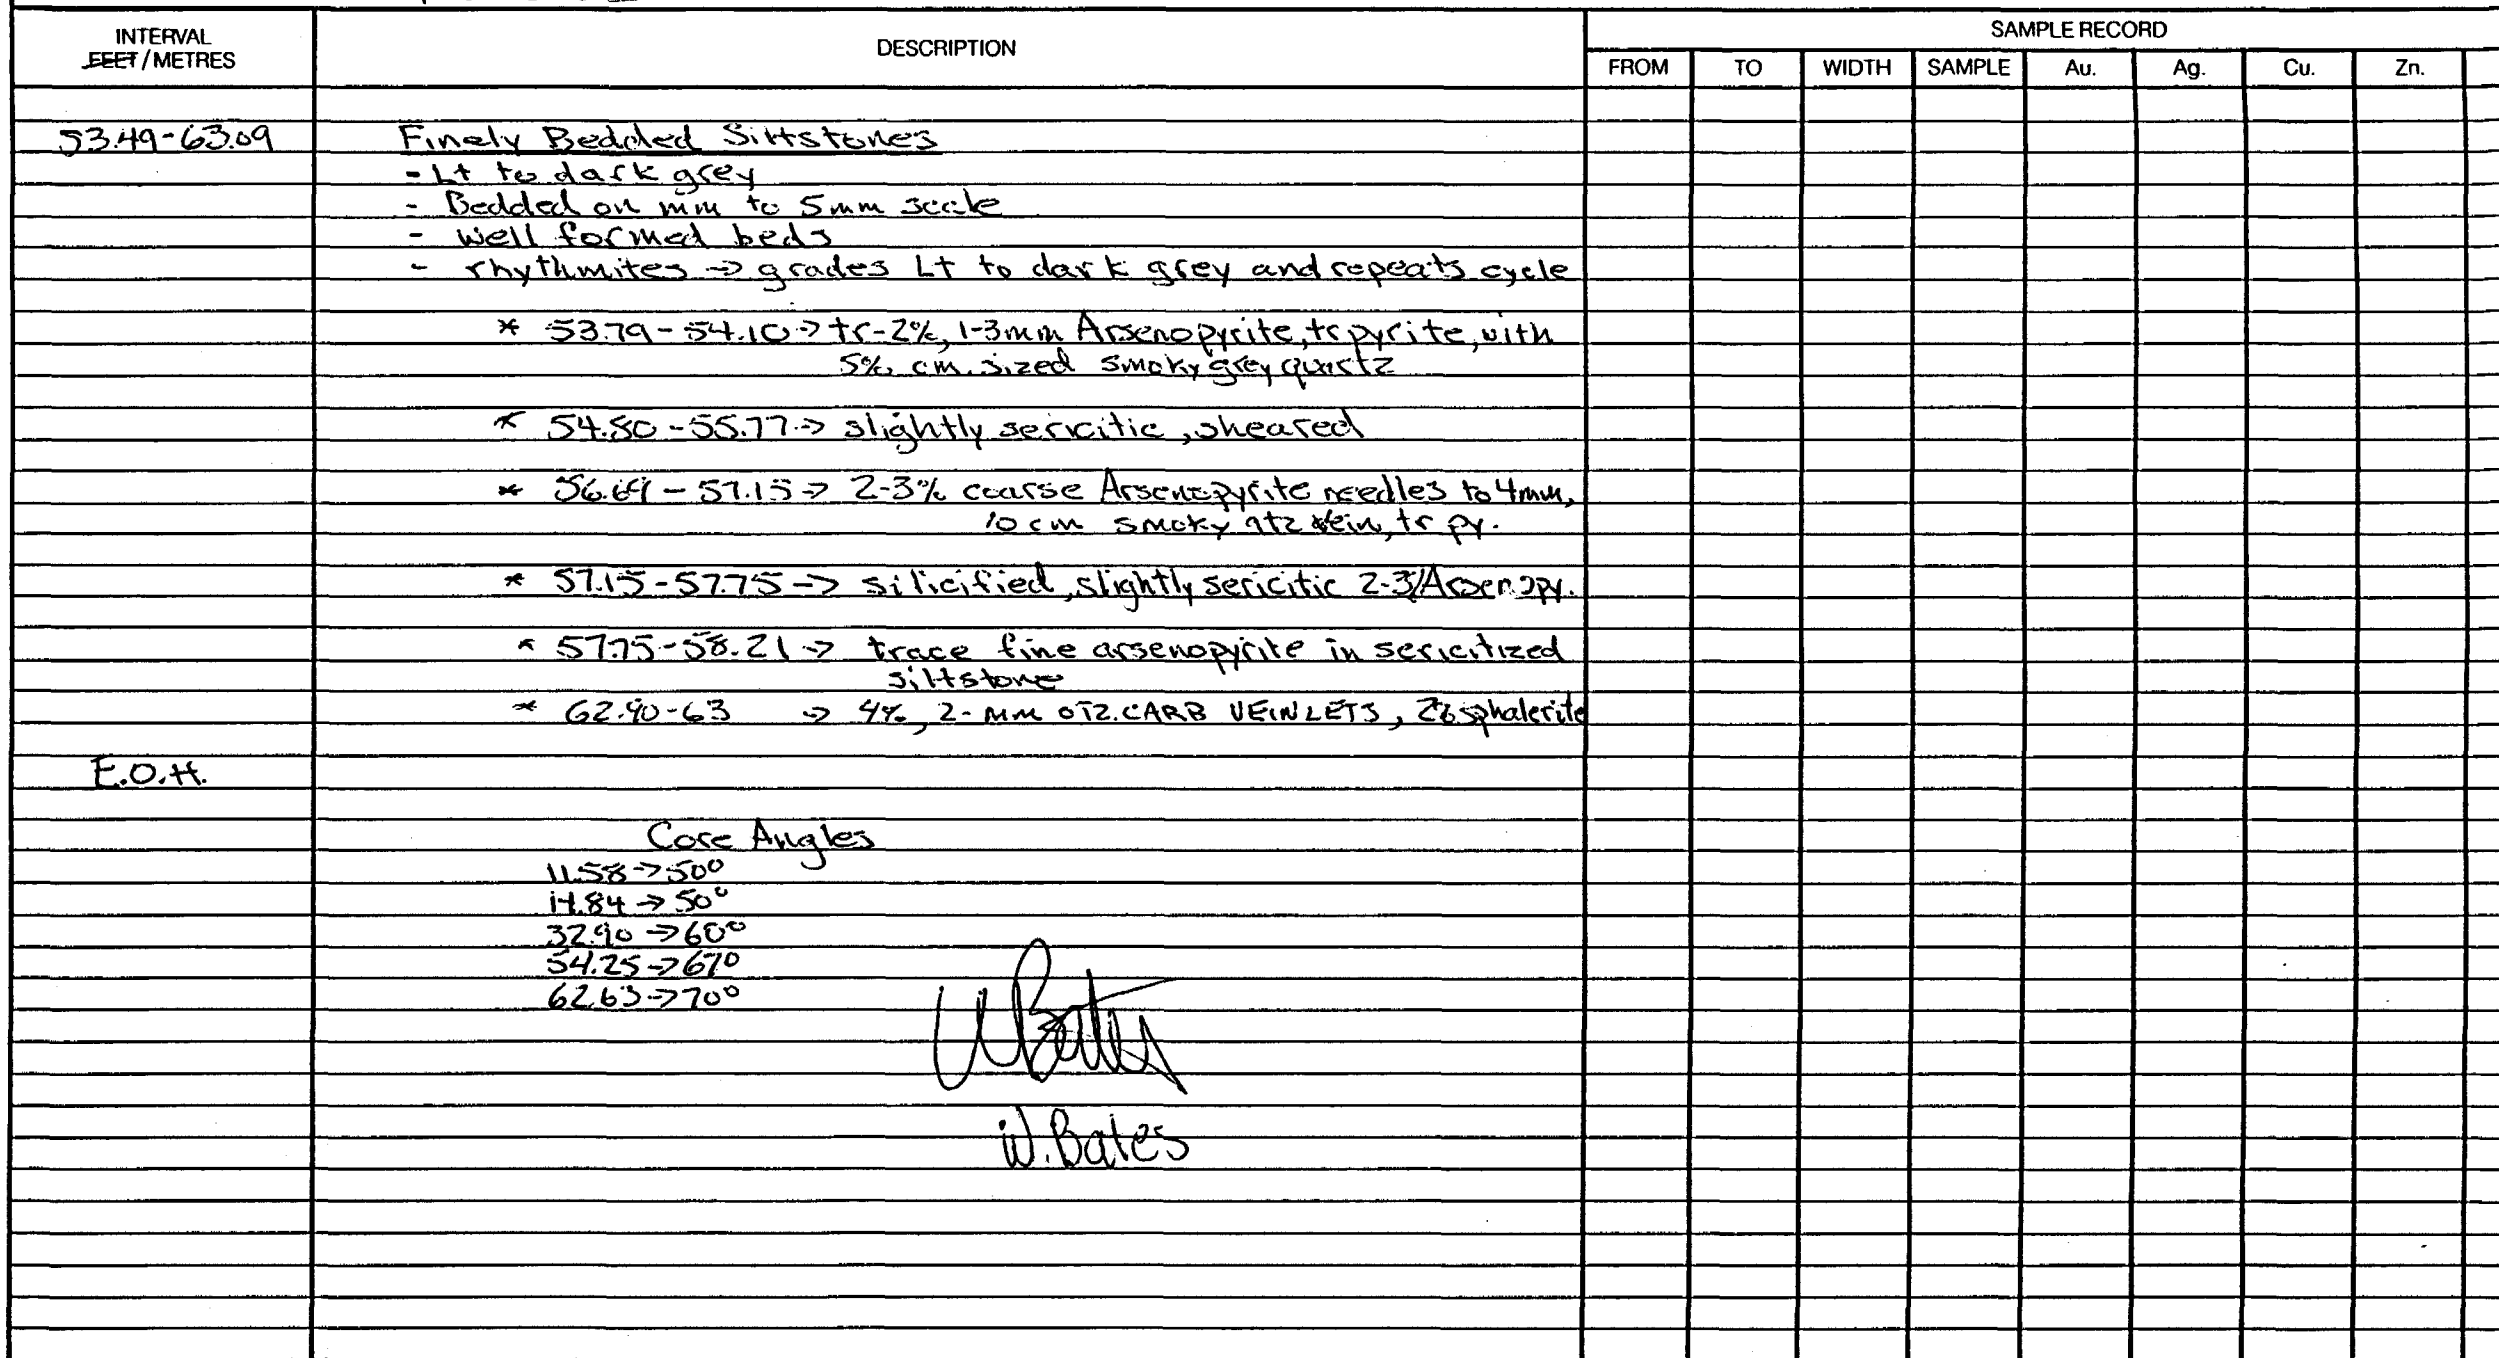 INTERVAL
FEET / METRES
DESCRIPTION
SAMPLE RECORD
FROM TO WIDTH SAMPLE Au. Ag. Cu. Zn.
53.49-63.09 Finely Bedded Siltstones
- Lt to dark grey
- Bedded on mm to 5mm scale
- well formed beds
- rhythmites -> grades Lt to dark grey and repeats cycle
* 53.79-54.10 -> tr-2%, 1-3mm Arsenopyrite, tr pyrite, with
5% cm. sized smoky grey quartz
* 54.80-55.77 -> slightly sericitic, sheared
* 56.69-57.15 -> 2-3% coarse Arsenopyrite needles to 4mm,
10 cm smoky qtz vein, tr py.
* 57.15-57.75 -> silicified, slightly sericitic 2-3% Arsenopy.
* 57.75-58.21 -> trace fine arsenopyrite in sericitized
siltstone
* 62.90-63 -> 4%, 2-MM QTZ.CARB VEINLETS, 2% sphalerite
E.O.H.
Core Angles
11.58 -> 50°
14.84 -> 50°
32.90 -> 60°
54.25 -> 67°
62.63 -> 70°
W Bates
W. Bates